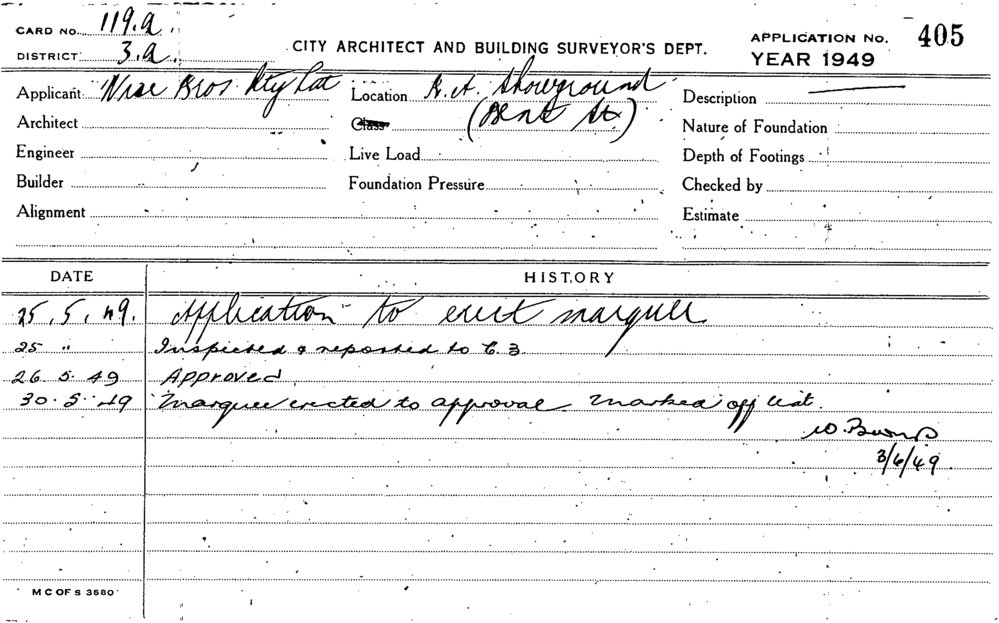 CARD NO. 119.a.
DISTRICT 3.a.
CITY ARCHITECT AND BUILDING SURVEYOR'S DEPT.
APPLICATION No. 405
YEAR 1949
Applicant Wise Bros. Pty Ltd
Location R.A. Showground
(Bent St.)
Description
Architect
Class
Nature of Foundation
Engineer
Live Load
Depth of Footings
Builder
Foundation Pressure
Checked by
Alignment
Estimate
DATE
HISTORY
25.5.49. Application to erect marquee
25 " Inspected & reported to C.B.
26.5.49 Approved
30.5.49 Marquee erected to approval. Marked off list.
W.
3/6/49.
M C OF S 3580